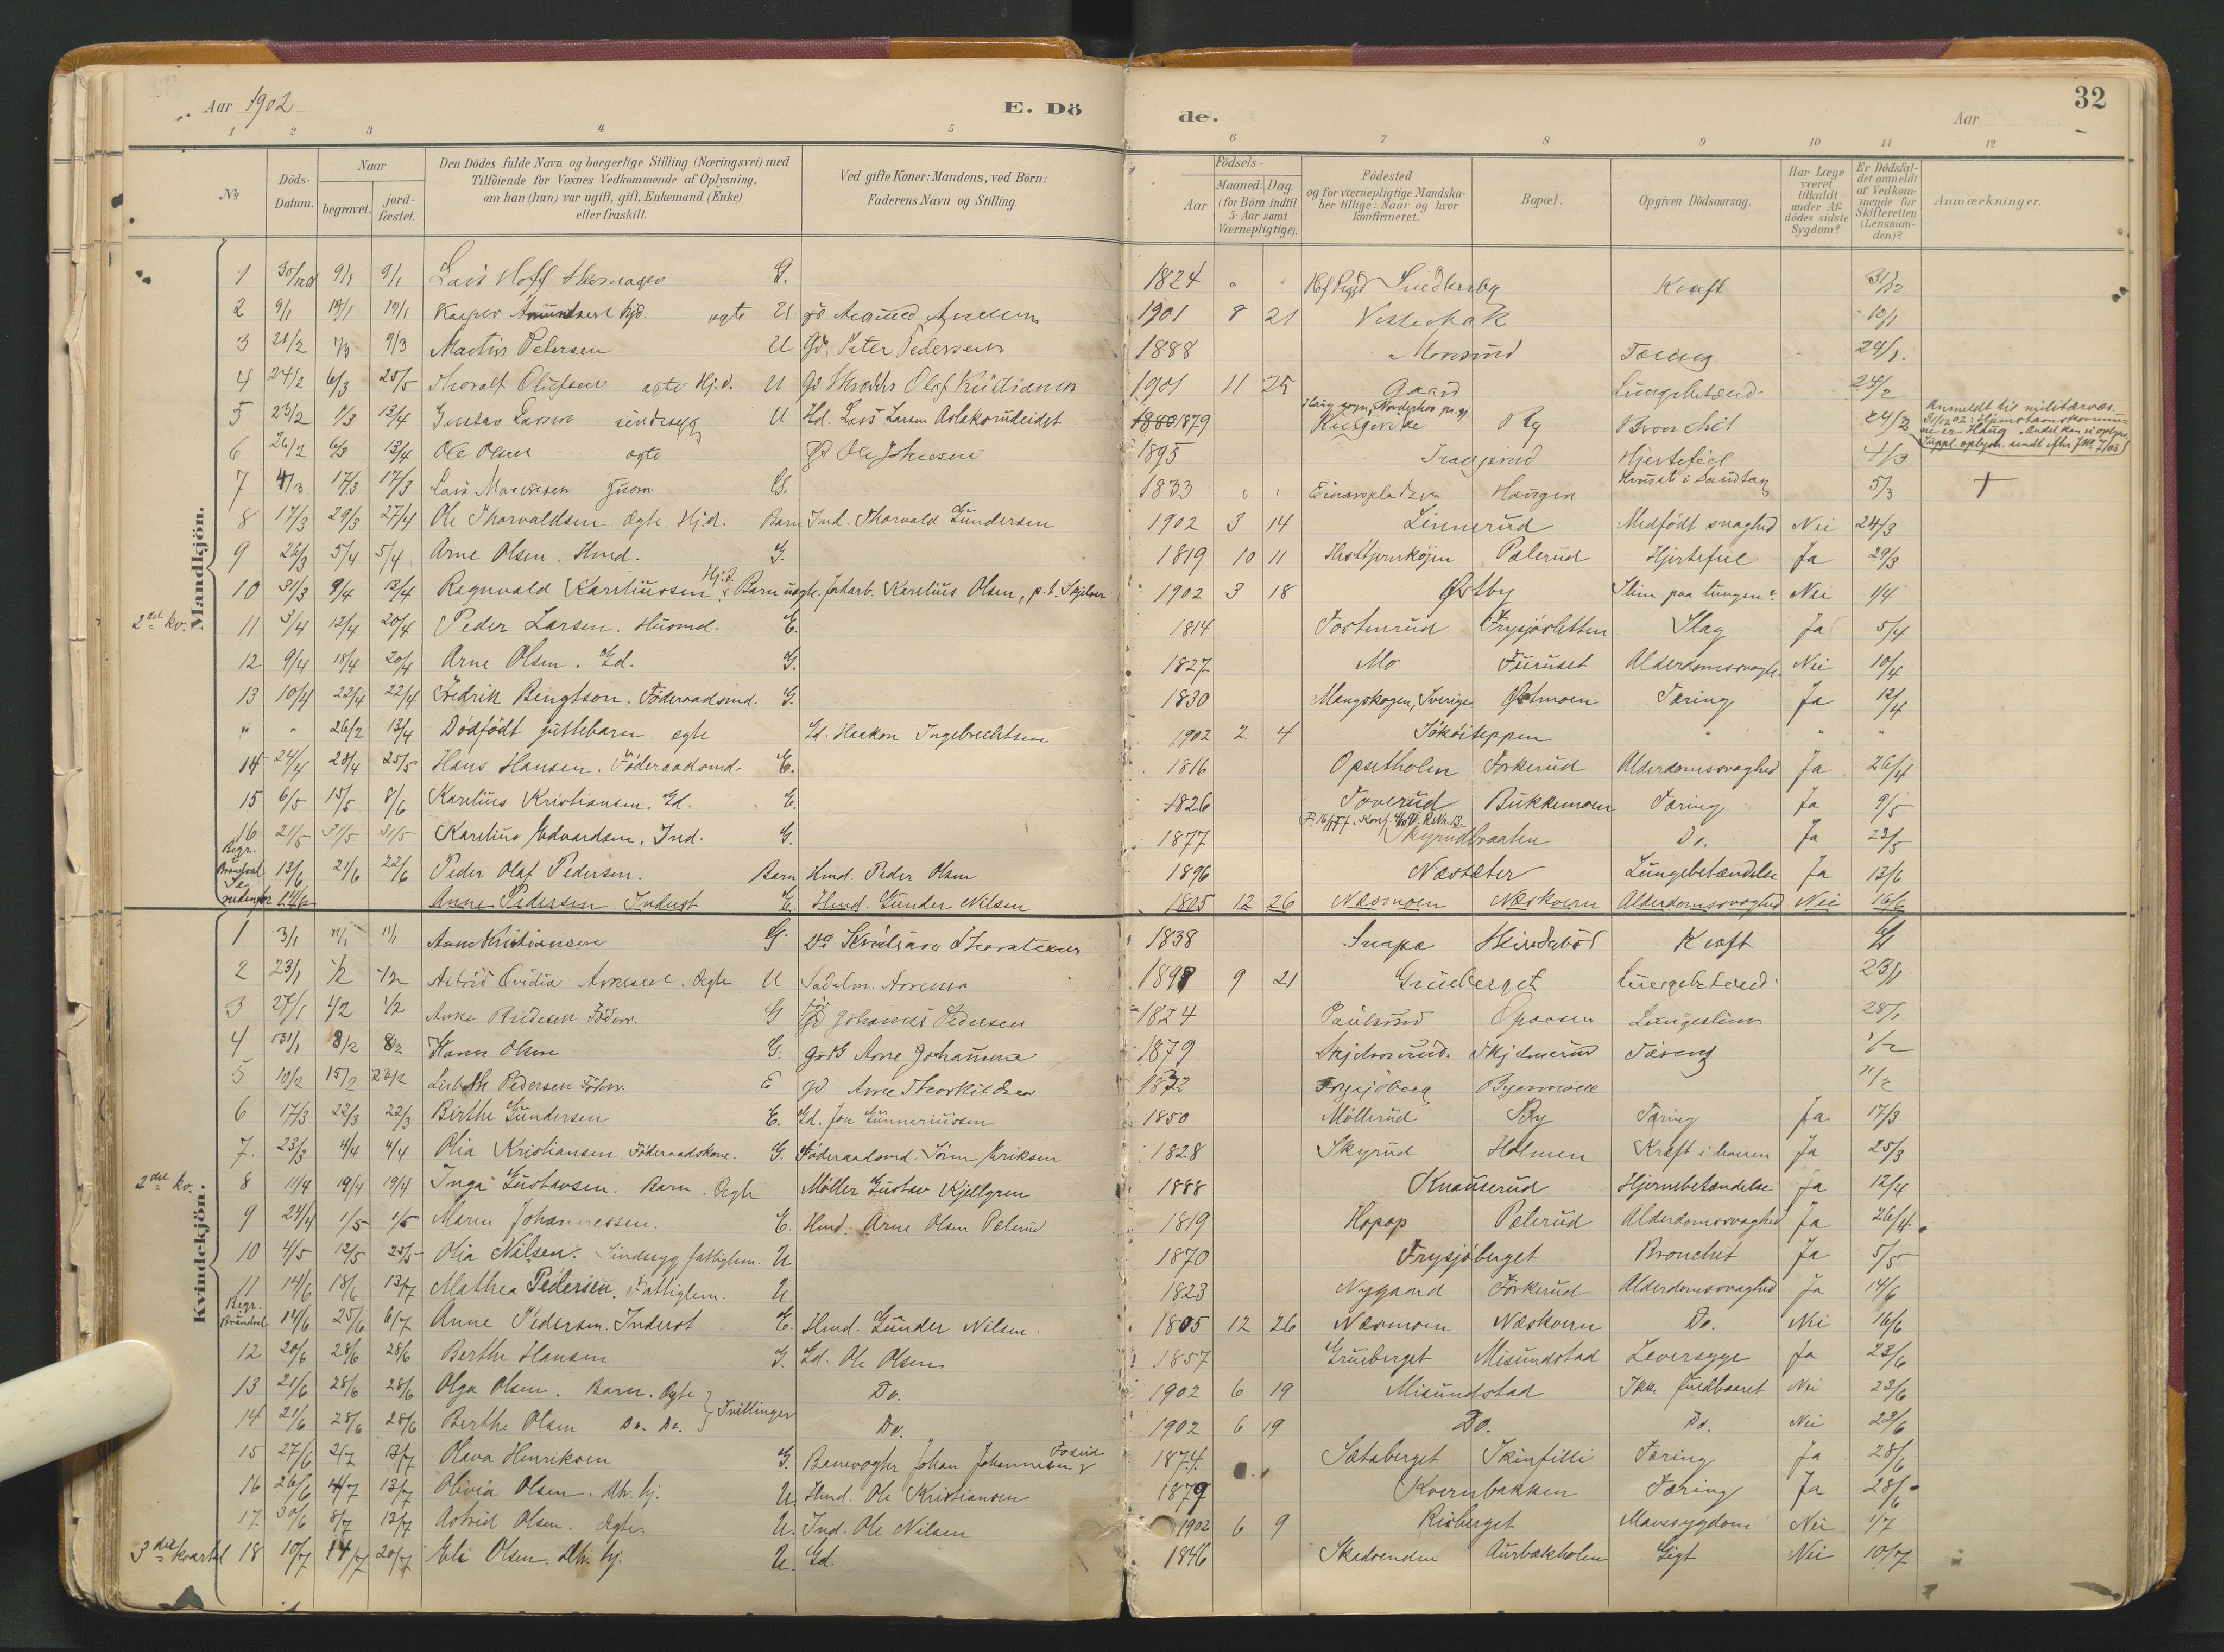 Aar 1902 E. Dö de. Aar 32
1 2 3 4 5 6 7 8 9 10 11 12
No. Döds-Datum. Naar begravet. jordfæstet. Den Dödes fulde Navn og borgerlige Stilling (Næringsvei) med Tilföiende for Voxnes Vedkommende af Oplysning, om han (hun) var ugift, gift, Enkemand (Enke) eller fraskilt. Ved gifte Koner: Mandens, ved Börn: Faderens Navn og Stilling. Födsels- Aar Maaned. Dag. (for Börn indtil 5 Aar samt Værnepligtige). Födested og for værnepligtige Mandskaber tillige: Naar og hvor konfirmeret. Bopæl. Opgiven Dödsaarsag. Har Læge været tilkaldt under Afdödes sidste Sygdom? Er Dödsfaldet anmeldt af Vedkommende for Skifteretten (Lensmanden)? Anmærkninger.
Mandkjön.
1 9/1 9/1 Lars Hoff G. 1824 Kræft 31/12
2 9/1 19/1 19/1 Kasper ægte U 1901 8 21 10/1
3 9/3 Martin Petersen U Gd. Peter Pedersen 1888 Tæring 24/1
4 24/2 6/3 25/5 Thoralf Olufsen ægte Hj.d. U 1901 11 25 Gaard Lungebetænd. 24/2
5 23/2 13/4 Gustav Larsen sindssyg U Hd. Lars Larsen Aslaksrudeidet 1880 1879 Haug sogn, Norderhov pr.gj. By Bronchit 24/2 Anmeldt til militærvæs.
6 26/2 6/3 13/4 Ole Olsen ægte Gd Ole Johnsen 1895 Hjertefeil 1/3
7 4/3 17/3 17/3 Lars G. 1833 Haugen 5/3 +
8 17/3 29/3 27/4 Ole Thorvaldsen. Ægte. Hj.d. Barn Ind. Thorvald Gundersen 1902 3 14 Linnerud Medfödt svaghed Nei 24/3
9 26/3 5/4 5/4 Arne Olsen. Hmd. G. 1819 10 11 Pælerud Hjertefeil Ja 29/3
10 31/3 9/4 13/4 Ragnvald Kareliussen Hj.d. Barn uægte. Jordarb. Karelius Olsen, p.t. Skjelver 1902 3 18 Østby Slim paa lungen? Nei 1/4
2det kv. 11 3/4 12/4 20/4 Peder Larsen. Husmd. E. 1814 Tostenrud Frysjøsletten Slag Ja 5/4
12 9/4 18/4 20/4 Arne Olsen. Gd. G. 1827 Mo Furuset Alderdomssvagh. Nei 10/4
13 10/4 22/4 22/4 Fredrik Bengtson. Föderaadsmd. G. 1830 Mangskogen, Sverige Østmoen Tæring Ja 12/4
" " 26/2 13/4 Dödfödt guttebarn. ægte Gd. Haakon Ingebrechtsen 1902 2 4 " " "
14 24/4 28/4 25/5 Hans Hansen. Föderaadsmd. E. 1816 Opsetholen Torkerud Alderdomssvaghed Ja 26/4
15 6/5 15/5 8/6 Karelius Kristiansen. Gd. E. 1826 Toverud Bukkemoen Tæring Ja 9/5
16 21/5 31/5 31/5 Karelius Edvardsen. Ind. G. 1877 Skyrudbraaten Do. Ja 23/5
Begr. Brandval 13/6 21/6 22/6 Peder Olaf Pedersen. Barn Hmd. Peder Olsen 1896 Næssæter Lungebetændelse Ja 13/6
Se nedenfor 14/6 Anne Pedersen Inderst E. Hmd. Gunder Nilsen 1805 12 26 Næsmoen Næskvern Alderdomssvaghed Nei 16/6
Kvindekjön.
1 3/1 11/1 11/1 Anne Kristiansen G 1838 Snapa Kræft
2 23/1 1/2 1/2 Astrid Ovidia Arnesen. Ægte U 1898 9 21 Grueberget Lungebetænd. 23/1
3 27/1 1/2 1/2 Anne Föderr. G Gd Johannes Pedersen 1824 Paulsrud Opaasen Lungeslim 28/1
4 31/1 8/2 8/2 Karen Olsen G. Arne Johansen 1879 Skjelmerud Tæring 1/2
5 10/2 15/2 23/2 Lisbeth Pedersen Föderr. E Gd Arne Thorkildsen 1832 Frysjøberg 11/2
6 17/3 22/3 22/3 Birthe Gundersen E. Gd. Jon Gunneriussen 1850 Möllerud By Tæring Ja 17/3
7. 23/3 4/4 4/4 Olia Kristiansen. Föderaadskone. G. Föderaadsmd. Sören Eriksen 1828 Skyrud Holmen Kræft i barmen Ja 25/3
2det kv. 8 11/4 19/4 19/4 Inga Gustavsen. Barn. Ægte Möller Gustav Kjellgren 1888 Knauserud Hjernebetændelse Ja 12/4
9 24/4 1/5 1/5 Maren Johannessen. E. Hmd. Arne Olsen Pælerud 1819 Hopop Pælerud Alderdomssvaghed Ja 26/4
10 4/5 12/5 25/5 Olia Nilsen. Sindssyg fattiglem. U 1870 Frysjöberget Bronchit Ja 5/5
11 14/6 18/6 13/7 Mathea Pedersen. Fattiglem. U. 1823 Nygaard Torkerud Alderdomssvaghed Ja 14/6
Begr. Brandval 14/6 25/6 6/7 Anne Pedersen. Inderst E. Hmd. Gunder Nilsen. 1805 12 26 Næsmoen Næskvern Do. Nei 16/6
12 20/6 28/6 28/6 Berthe Hansen G. Gd. Ole Olsen 1857 Grueberget Misundstad Leversyge Ja 23/6
13 21/6 28/6 28/6 Olga Olsen. Barn. Ægte } Tvillinger Do. 1902 6 19 Misundstad Ikke fuldbaaret Nei 23/6
14 21/6 28/6 28/6 Berthe Olsen Do. Do. Do. 1902 6 19 Do. Do. Nei 23/6
15 27/6 2/7 13/7 Olava Henriksen G. Banevogter Johan Johannesen 1874 Sætaberget Skinfilli Tæring Ja 28/6
16 26/6 4/7 13/7 Olivia Olsen. dtr. hj. U. Hmd. Ole Kristiansen 1879 Kvernbakken Tæring Ja 28/6
17 30/6 8/7 13/7 Astrid Olsen. Ægte. U. Ind. Ole Nilsen 1902 6 9 Risberget Mavesygdom Nei 1/7
3die kvartal 18 10/7 14/7 20/7 Eli Olsen. dtr. hj. U. Gd. 1846 Skadvenden Aurbækholen Gigt Nei 10/7